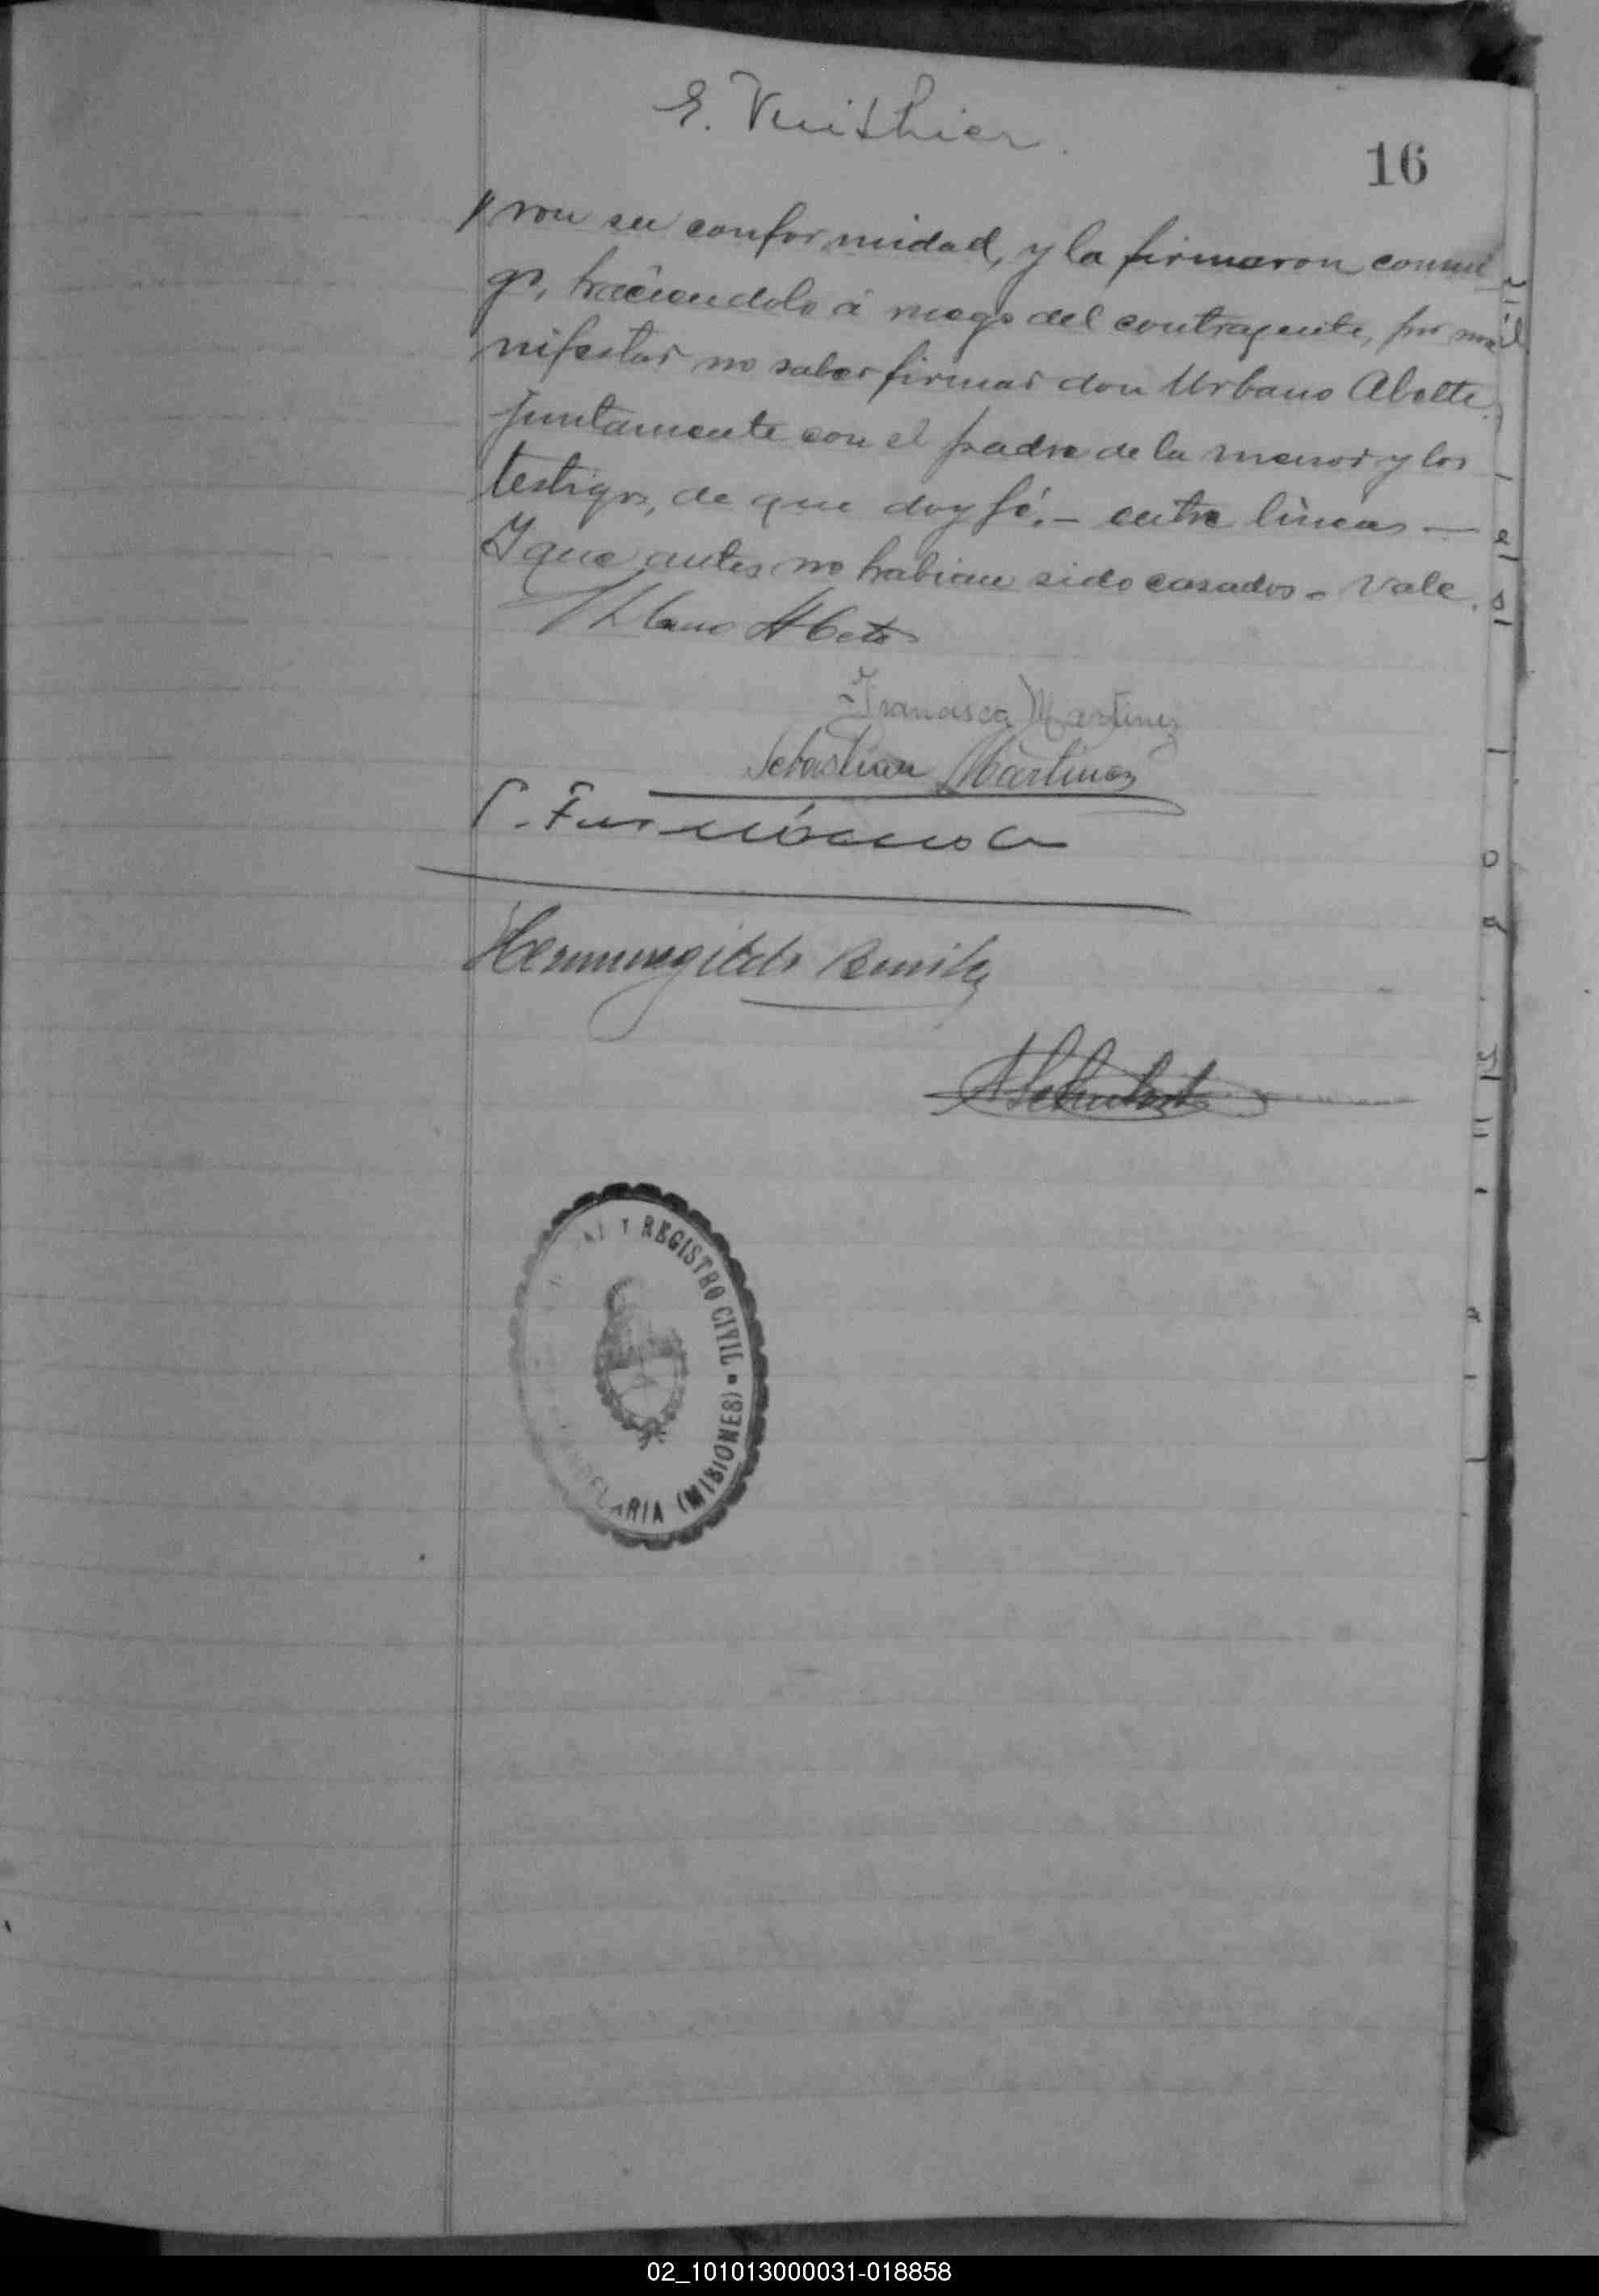 E. Vuithier.
16
ron su conformidad, y la firmaron conmi
go, haciendolo á ruego del contrayente, por ma
nifestar no saber firmar don Urbano Abette.
Juntamente con el padre de la menor y los
testigos, de que doy fé. – entre lineas –
Y que antes no habian sido casados = Vale.
Urbano Abete
Francisca Martinez
Sebastian Martinez
Hermenegildo
Y REGISTRO CIVIL
CANDELARIA (MISIONES)
02_101013000031-018858